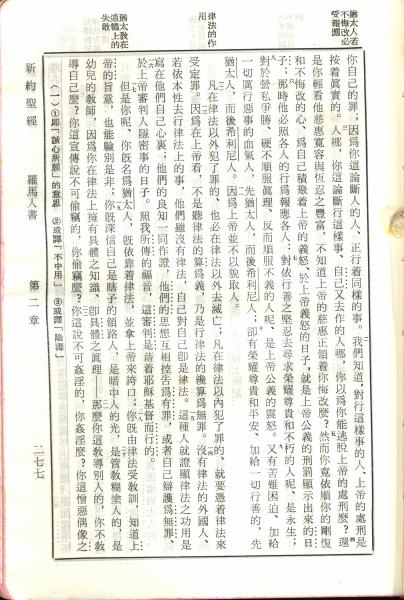 猶太人若
不悔改必
受報應
律法的作
用
猶太教在
道德上的
失敗
你自己的罪;因爲你這論斷人的人、正行着同樣的事。我們知道,對行這樣事的人、上帝的處刑是
按着眞實的。人哪,你這論斷行這樣事、自己又去作的人哪,你以爲你能逃脫上帝的處刑麼?還
是你輕看他慈惠寬容與恆忍之豐富,不知道上帝的慈惠正領着你悔改麼?然而你竟依順你的剛愎
和不悔改的心、爲自己積聚着上帝的義怒於上帝義怒的日子,就是上帝公義的刑罰顯示出來的日
子;那時他必照各人的行爲報應各人:對依行善之堅忍去尋求榮耀尊貴和不朽的人呢、是永生;
對於營私爭勝、硬不順服眞理、反而順服不義的人呢、是上帝公義的震怒。又有苦難困迫、加給
一切厲行惡事的血氣人,先猶太人,而後希利尼人;卻有榮耀尊貴和平安、加給一切行善的,先
猶太人,而後希利尼人。因爲上帝並不以貌取人。
凡在律法以外犯了罪的、也必在律法以外去滅亡,凡在律法以內犯了罪的、就要憑着律法來
受定罪。因爲在上帝看,不是聽律法的算爲義,乃是行律法的纔算爲無罪。沒有律法的外國人、
若依本性去行律法上的事,他們雖沒有律法,自己對自己卽是律法。這種人就證顯律法之功用是
寫在他們自己心裏;他們的良知一同作證,他們的思想互相控告爲有罪,或者自己辯護爲無罪,
於上帝審判人隱密事的日子。照我所傳的福音,這審判是藉着耶穌基督而行的。
但是你呢、你旣名爲猶太人,旣依靠着律法,並拿上帝來誇口;你旣由律法受敎訓,知道上
帝的旨意,也能驗別是非,你旣深信自己是瞎子的領路人,是暗中人的光,是管敎糊塗人的,是
幼兒的敎師,因爲你在律法上擁有具體之知識、卽具體之眞理——那麼你這敎導別人的,你不敎
導自己麼?你這宣傳說不可偷竊的,你偷竊麼?你這說不可姦淫的,你姦淫麼?你這憎惡偶像之
(一)①卽「隨心所願」的意思 ②或譯「不中用」 ③或譯「陰毒」
新約聖經 羅馬人書 第二章 二七七